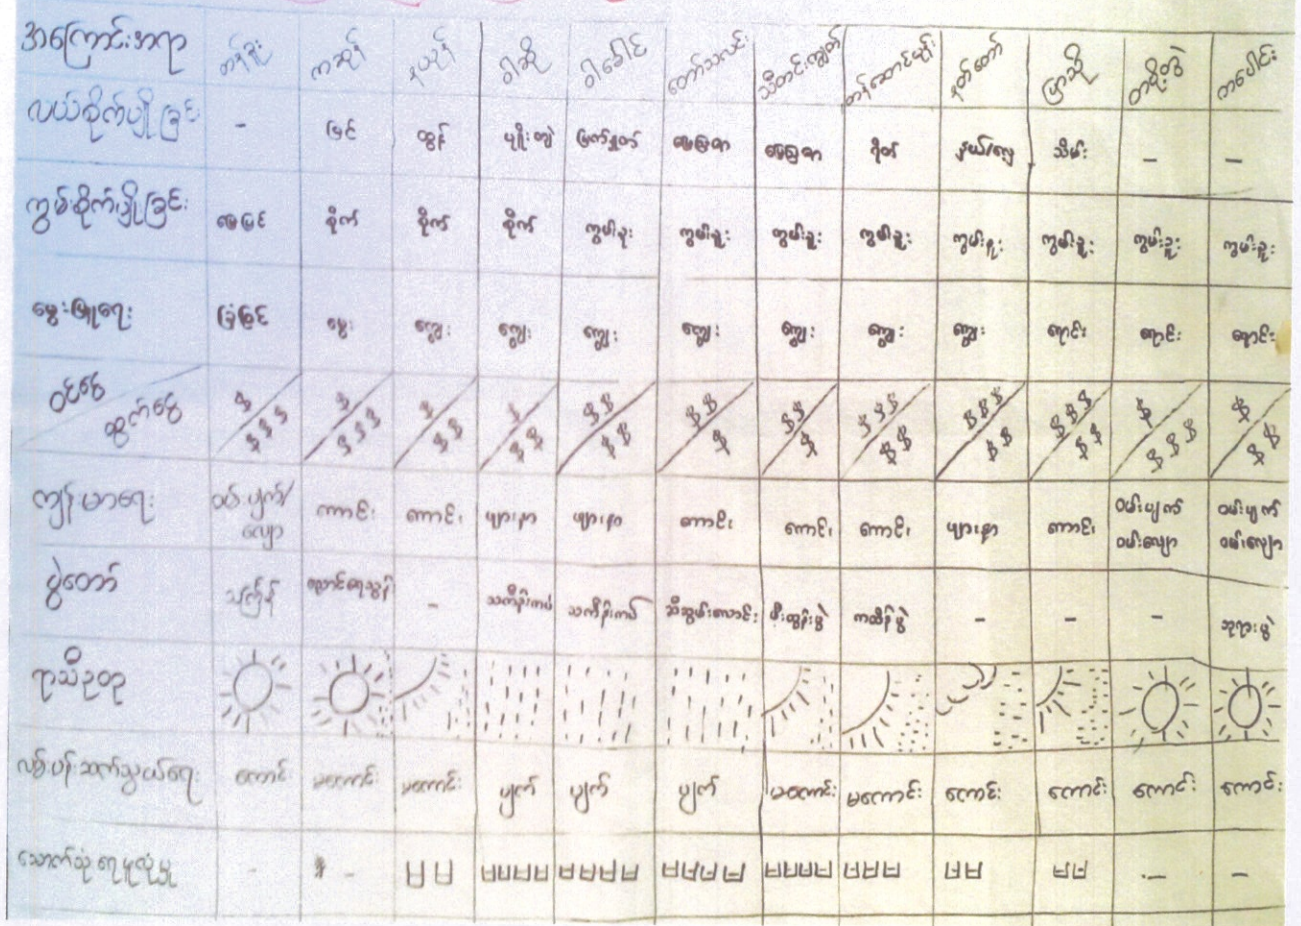 အကြောင်းအရာ တန်ခူး ကဆုန် နယုန် ဝါဆို ဝါခေါင် တော်သလင်း သီတင်းကျွတ် တန်ဆောင်မုန်း နတ်တော် ပြာသို တပို့တွဲ တပေါင်း
လယ်စိုက်ပျိုးခြင်း - ပြင် ထွန် ပျိုးကျဲ မြေဩဇာ မြေဩဇာ ရိတ် သိမ်း - -
ကွမ်းစိုက်ပျိုးခြင်း မြေပြင် စိုက် စိုက် စိုက် ကွမ်းခူး ကွမ်းခူး ကွမ်းခူး ကွမ်းခူး ကွမ်းခူး ကွမ်းခူး ကွမ်းခူး ကွမ်းခူး
မွေးမြူရေး ခြံပြင် မွေး ကျွေး ကျွေး ကျွေး ကျွေး ကျွေး ကျွေး ကျွေး ရောင်း ရောင်း ရောင်း
ဝင်ငွေ $ $ $ $ $$ $$ $$ $$$ $$$ $$$ $ $
ထွက်ငွေ $$$ $$$ $$ $$ $$ $ $ $$ $$ $$ $$$ $$
ကျန်းမာရေး ဝမ်းပျက်/ ကောင်း ကောင်း ဖျားနာ ဖျားနာ ကောင်း ကောင်း ကောင်း ဖျားနာ ကောင်း ဝမ်းပျက် ဝမ်းပျက်
လျော ဝမ်းလျော ဝမ်းလျော
ပွဲတော် သင်္ကြန် ညောင်ရေသွန်း - သင်္ကန်းကပ် သင်္ကန်းကပ် ဆီဆွမ်းလောင်း မီးထွန်းပွဲ ကထိန်ပွဲ - - - ဘုရားပွဲ
ရာသီဥတု
လမ်းပန်းဆက်သွယ်ရေး ကောင်း မကောင်း မကောင်း ပျက် ပျက် ပျက် မကောင်း မကောင်း ကောင်း ကောင်း ကောင်း ကောင်း
သောက်သုံးရေ - - - -